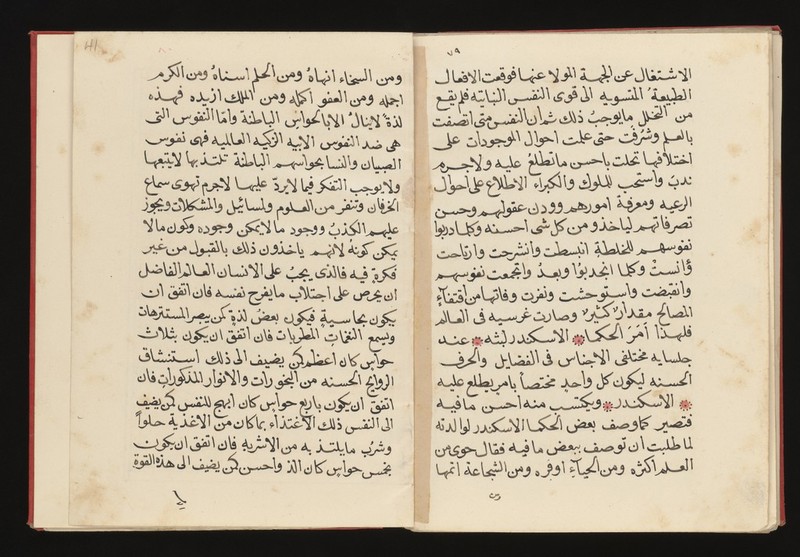 ٧٩
الاشتغال عن الجهة المولا عنها فوقعت الافعال
الطبيعة المنسوبه الى قوى النفس النباتيه فلم يقع
من التخلل ما يوجب ذلك ثم ان النفس متى اتصفت
بالعلم وشرفت حتى علمت احوال الموجودات على
اختلافها تحلت باحسن ما تطلع عليه ولا جرم
ندب واستحب للملوك والكبراء الاطلاع على احوال
الرعيه ومعرفة امورهم ووزن عقولهم وحسن
تصرفاتهم لياخذو من كل شى احسنه وكلما دربوا
نفوسهم للخلطة انبسطت وانشرحت وارتاحت
وأنست وكلما انجدبوا وبعدو انجمعت نفوسهم
وانقبضت واستوحشت ونفرت وفاتها من اقتفاء
المصالح مقدار كثير وصارت غرسيه فى العالم
فلهذا امر الحكما الاسكندر لبثه عند
جلسايه مختلفى الاجناس فى الفضايل والحرف
الحسنه ليكون كل واحد مختصا بامر يطلع عليه
الاسكندر ويكتسب منه احسن ما فيه
فتصير كما وصف بعض الحكما الاسكندر لوالدته
لما طلبت ان توصف ببعض ما فيه فقال حوى من
العلم اكثره ومن الحياء اوفره ومن الشجاعة اتمها
ومن
41
ومن السخاء انهاه ومن الحلم اسناه ومن الكرم
اجمله ومن العفو اكمله ومن الملك ازيده فهذه
لذة لا ينال الا بالحواس الباطنة واما النفوس التى
هى ضد النفوس الابيه الزكيه العاليه فهى نفوس
الصبيان والنسا بحواسهم الباطنة تلتذ بها لا يتبعها
ولا يوجب التفكر فيما لا يرد عليها لاجرم تهوى سماع
الخرفان وتنفر من العلوم ولمسائيل والمشكلات ويجوز
عليهم الكذب ووجود ما لا يمكن وجوده وكون ما لا
يمكن كونه لانهم ياخذون ذلك بالقبول من غير
فكرة فيه فالذى يجب على الانسان العالم الفاضل
ان يحرص على اجتلاب ما يفرح نفسه فان اتفق ان
يكون بحاسية فيكون بعض لذة كمن يبصر المستنزهات
ويسمع النغمات المطربات فان اتفق ان يكون بثلاث
حواس كان اعظم كمن يضيف الى ذلك استنشاق
الروايح الحسنه من البخورات والانوار المذكورات فان
اتفق ان يكون باربع حواس كان ابهج للنفس كمن يضيف
الى النفس ذلك الاغتذاء بما كان من الاغذية حلوا
وشرب ما يلتذ به من الاشربه فان اتفق ان يكون
بخمس حواس كان الذ واحسن كمن يضيف الى هذه القوة